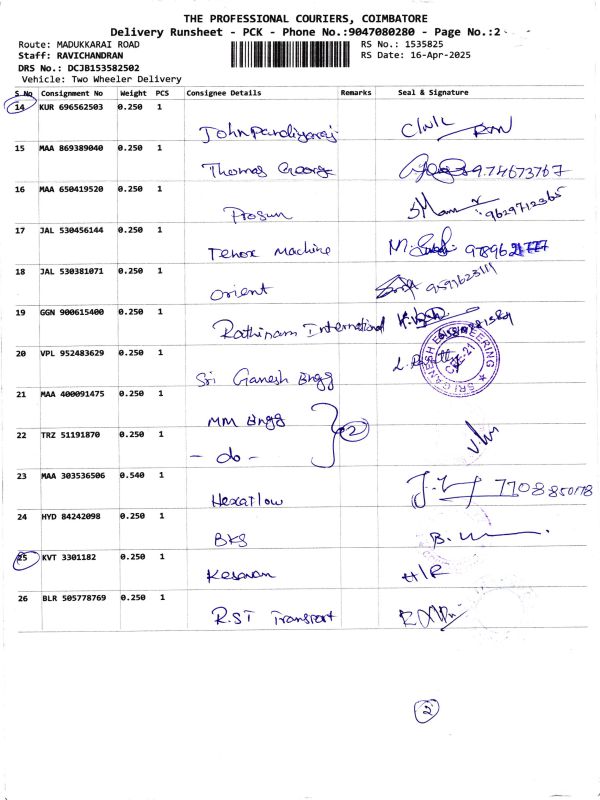 THE PROFESSIONAL COURIERS, COIMBATORE
Delivery Runsheet - PCK - Phone No.:9047080280 - Page No.:2
Route: MADUKKARAI ROAD RS No.: 1535825
Staff: RAVICHANDRAN RS Date: 16-Apr-2025
DRS No.: DCJB153582502
Vehicle: Two Wheeler Delivery
S No Consignment No Weight PCS Consignee Details Remarks Seal & Signature
14 KUR 696562503 0.250 1
Johnpandiyaraj. Clinic
15 MAA 869389040 0.250 1
Thomas George 9.74673767
16 MAA 650419520 0.250 1
Prosun 9629712365
17 JAL 530456144 0.250 1
Tenox Machine
18 JAL 530381071 0.250 1
Orient 9597623111
19 GGN 900615400 0.250 1
Rathinam International
20 VPL 952483629 0.250 1
Sri Ganesh Engg
SRI GANESH ENGINEERING
CBE-21
21 MAA 400091475 0.250 1
MM Engg
22 TRZ 51191870 0.250 1 2
- do -
23 MAA 303536506 0.540 1
Hexaflow 7708850178
24 HYD 84242098 0.250 1
BKS
25 KVT 3301182 0.250 1
Kesavan H/R
26 BLR 505778769 0.250 1
R.ST Transport
2